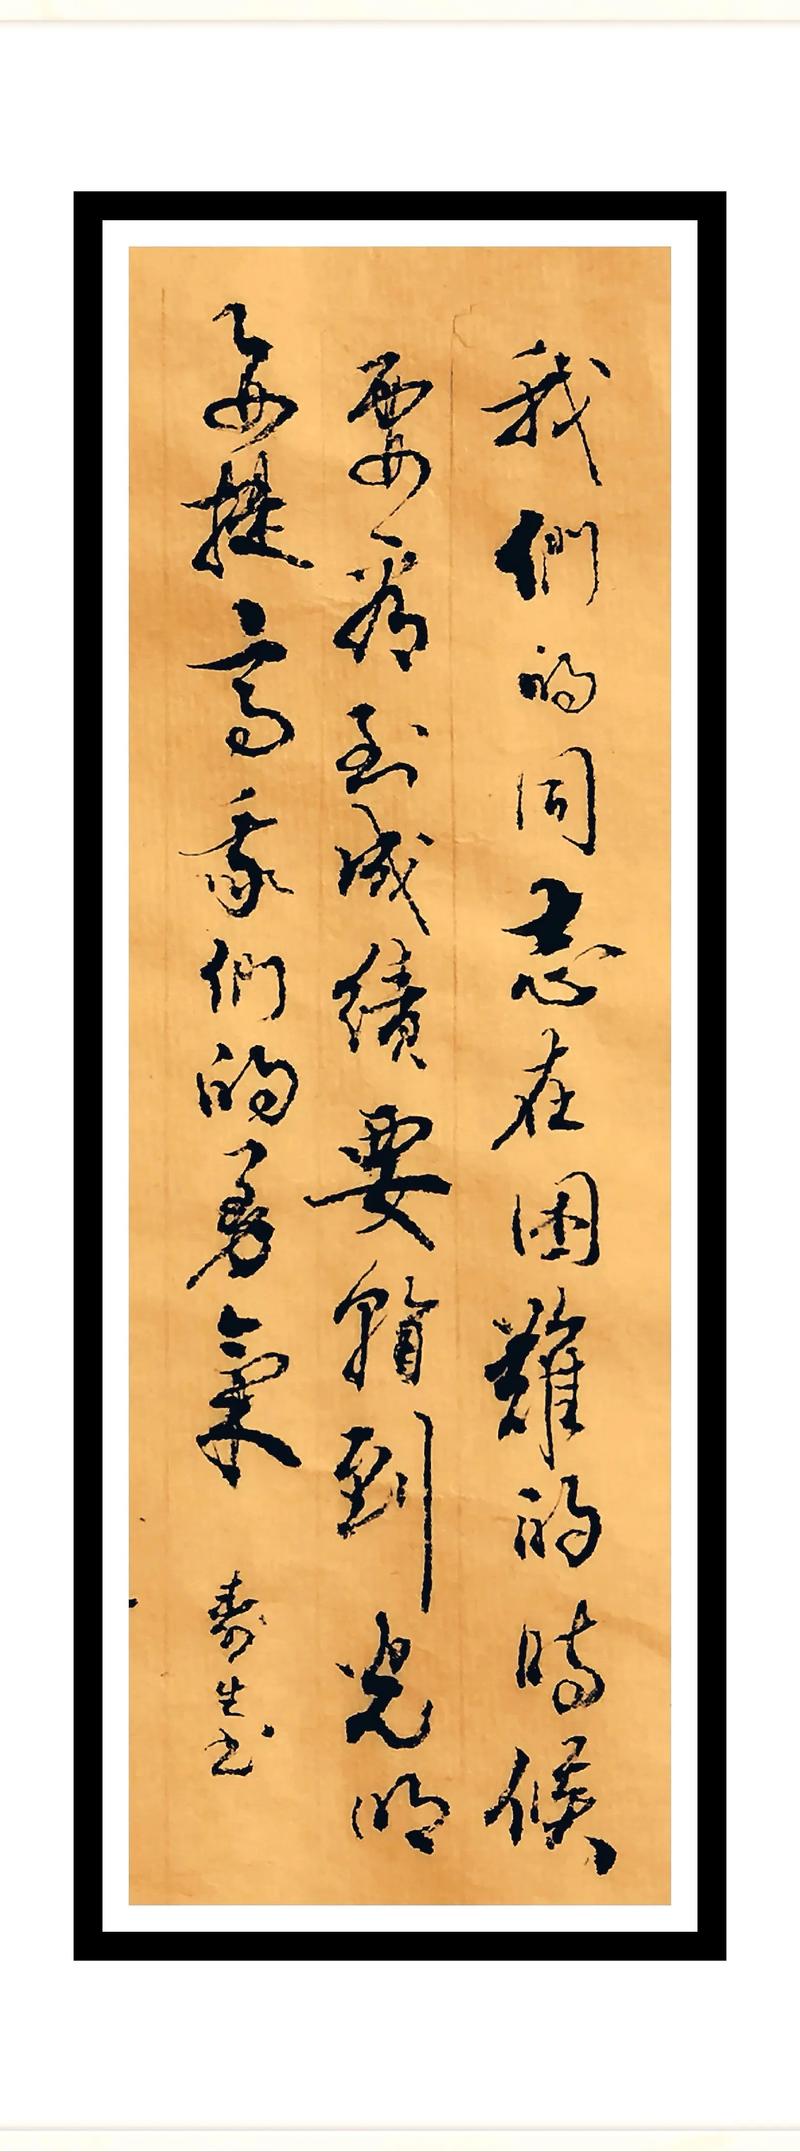 我們的同志在困難的時候
要看到成績要看到光明
要提高我們的勇氣
寿生书